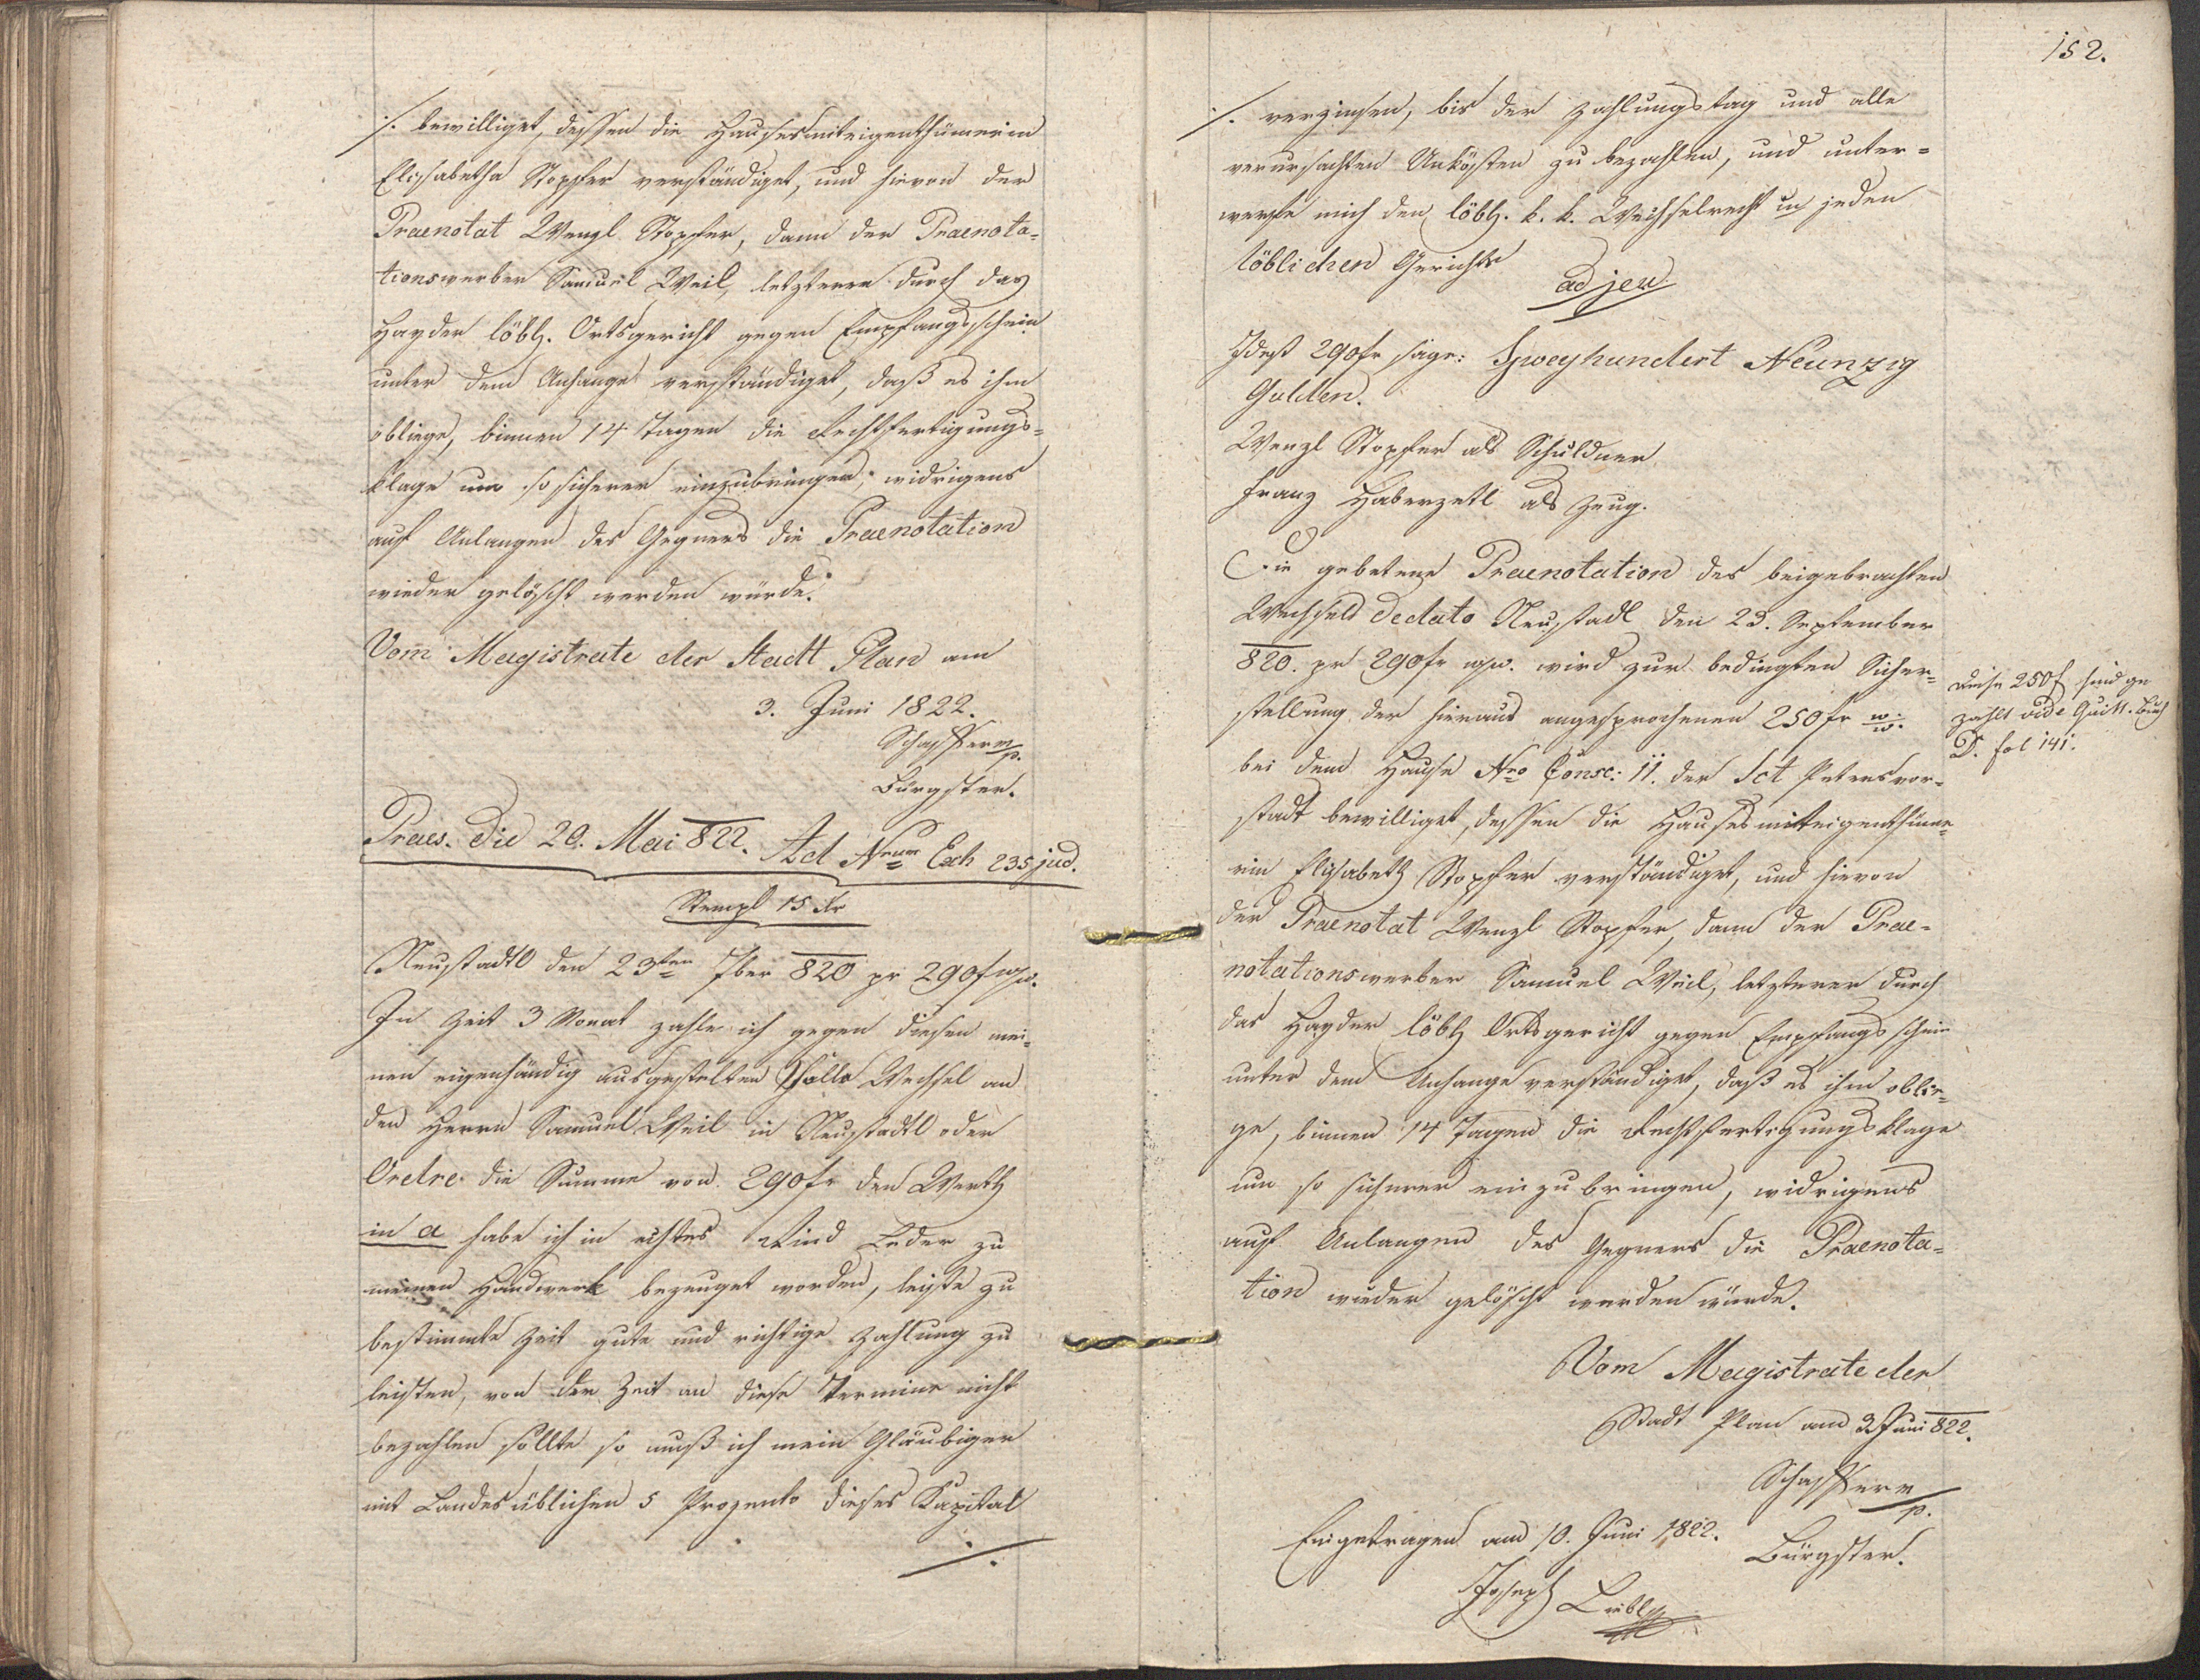 ·/. bewilliget, dessen die Hausesmiteigenthümerin
Elisabetha Stopfer verständiget, und hievon der
Praenotat Wenzl Stopfer, dann der Praenota=
tionswerber Samuel Weil, letzterer durch das
Hayder löbl. Ortsgericht gegen Empfangsschein
unter dem Anhange verständiget, daß es ihm
obliege, binnen 14 Tagen die Rechtfertigungs=
klage um so sicherer einzubringen, widrigens
auf Anlangen des Gegners die Praenotation
wieder gelöscht werden würde.
Vom Magistrate der Stadt Plan am
3. Juni 1822.
Schaffer m/p.
Bürgster.
Praes. die 29. Mai 822. Ad Nrum Exh 235 jud.
Stempl 15 Kr
Neustadtl den 23ten 7ber 820 pr 290f
In Zeit 3 Monat zahle ich gegen diesen mei=
nen eigenhändig ausgestelten Solla Wechsel an
den Herrn Samuel Weil in Neustadtl oder
Ordre die Summe von 290 fr den Werth
in a habe ich in echtes Rind Leder zu
meinen Handwerk bezeuget worden, leiste zu
bestimmte Zeit gute und richtige Zahlung zu
leisten, von der Zeit an diese Termine nicht
bezahlen sollte so muß ich mein Gläubiger
mit Landes üblichen 5 Prozento dieses Kapital
·/.
152.
·/. verzinsen, bis der Zahlungstag und alle
verursachten Unkösten zu bezahlen, und unter=
werfe mich den löbl. k. k. Wechselrecht in jeden
löblichen Gerichte
adjeu
Idest 290 fr sage: Zweyhundert Neunzig
Gulden.
Wenzl Stopfer als Schuldner
Franz Haberzetl als Zeug.
Die gebetene Praenotation des beigebrachten
Wechsels dedato Neustadl den 23. September
820. pr 290 fr wird zur bedingten Sicher=
stellung der hieraus angesprochenen 250 fr w. w.
bei dem Hause Nro Consc: 11. der Sct Petersvor=
stadt bewilliget, dessen die Hausesmiteigenthüme=
rin Elisabeth Stopfer verständiget, und hievon
der Praenotat Wenzl Stopfer, dann der Prae=
notationswerber Samuel Weil, letzterer durch
das Hayder löbl Ortsgericht gegen Empfangsschein
unter dem Anhange verständiget, daß es ihm oblie=
ge, binnen 14 Tagen die Rechtfertigungsklage
um so sicherer einzubringen, widrigens
auf Anlangen des Gegners die Praenota=
tion wieder gelöscht werden würde.
Vom Magistrate der
Stadt Plan am 3 Juni 822.
Schaffer m/p.
Bürgster.
Eingetragen am 10. Juni 1822.
Joseph
diese 250 f sind ge
zahlt vide Quitt. Buch
D. fol 141.